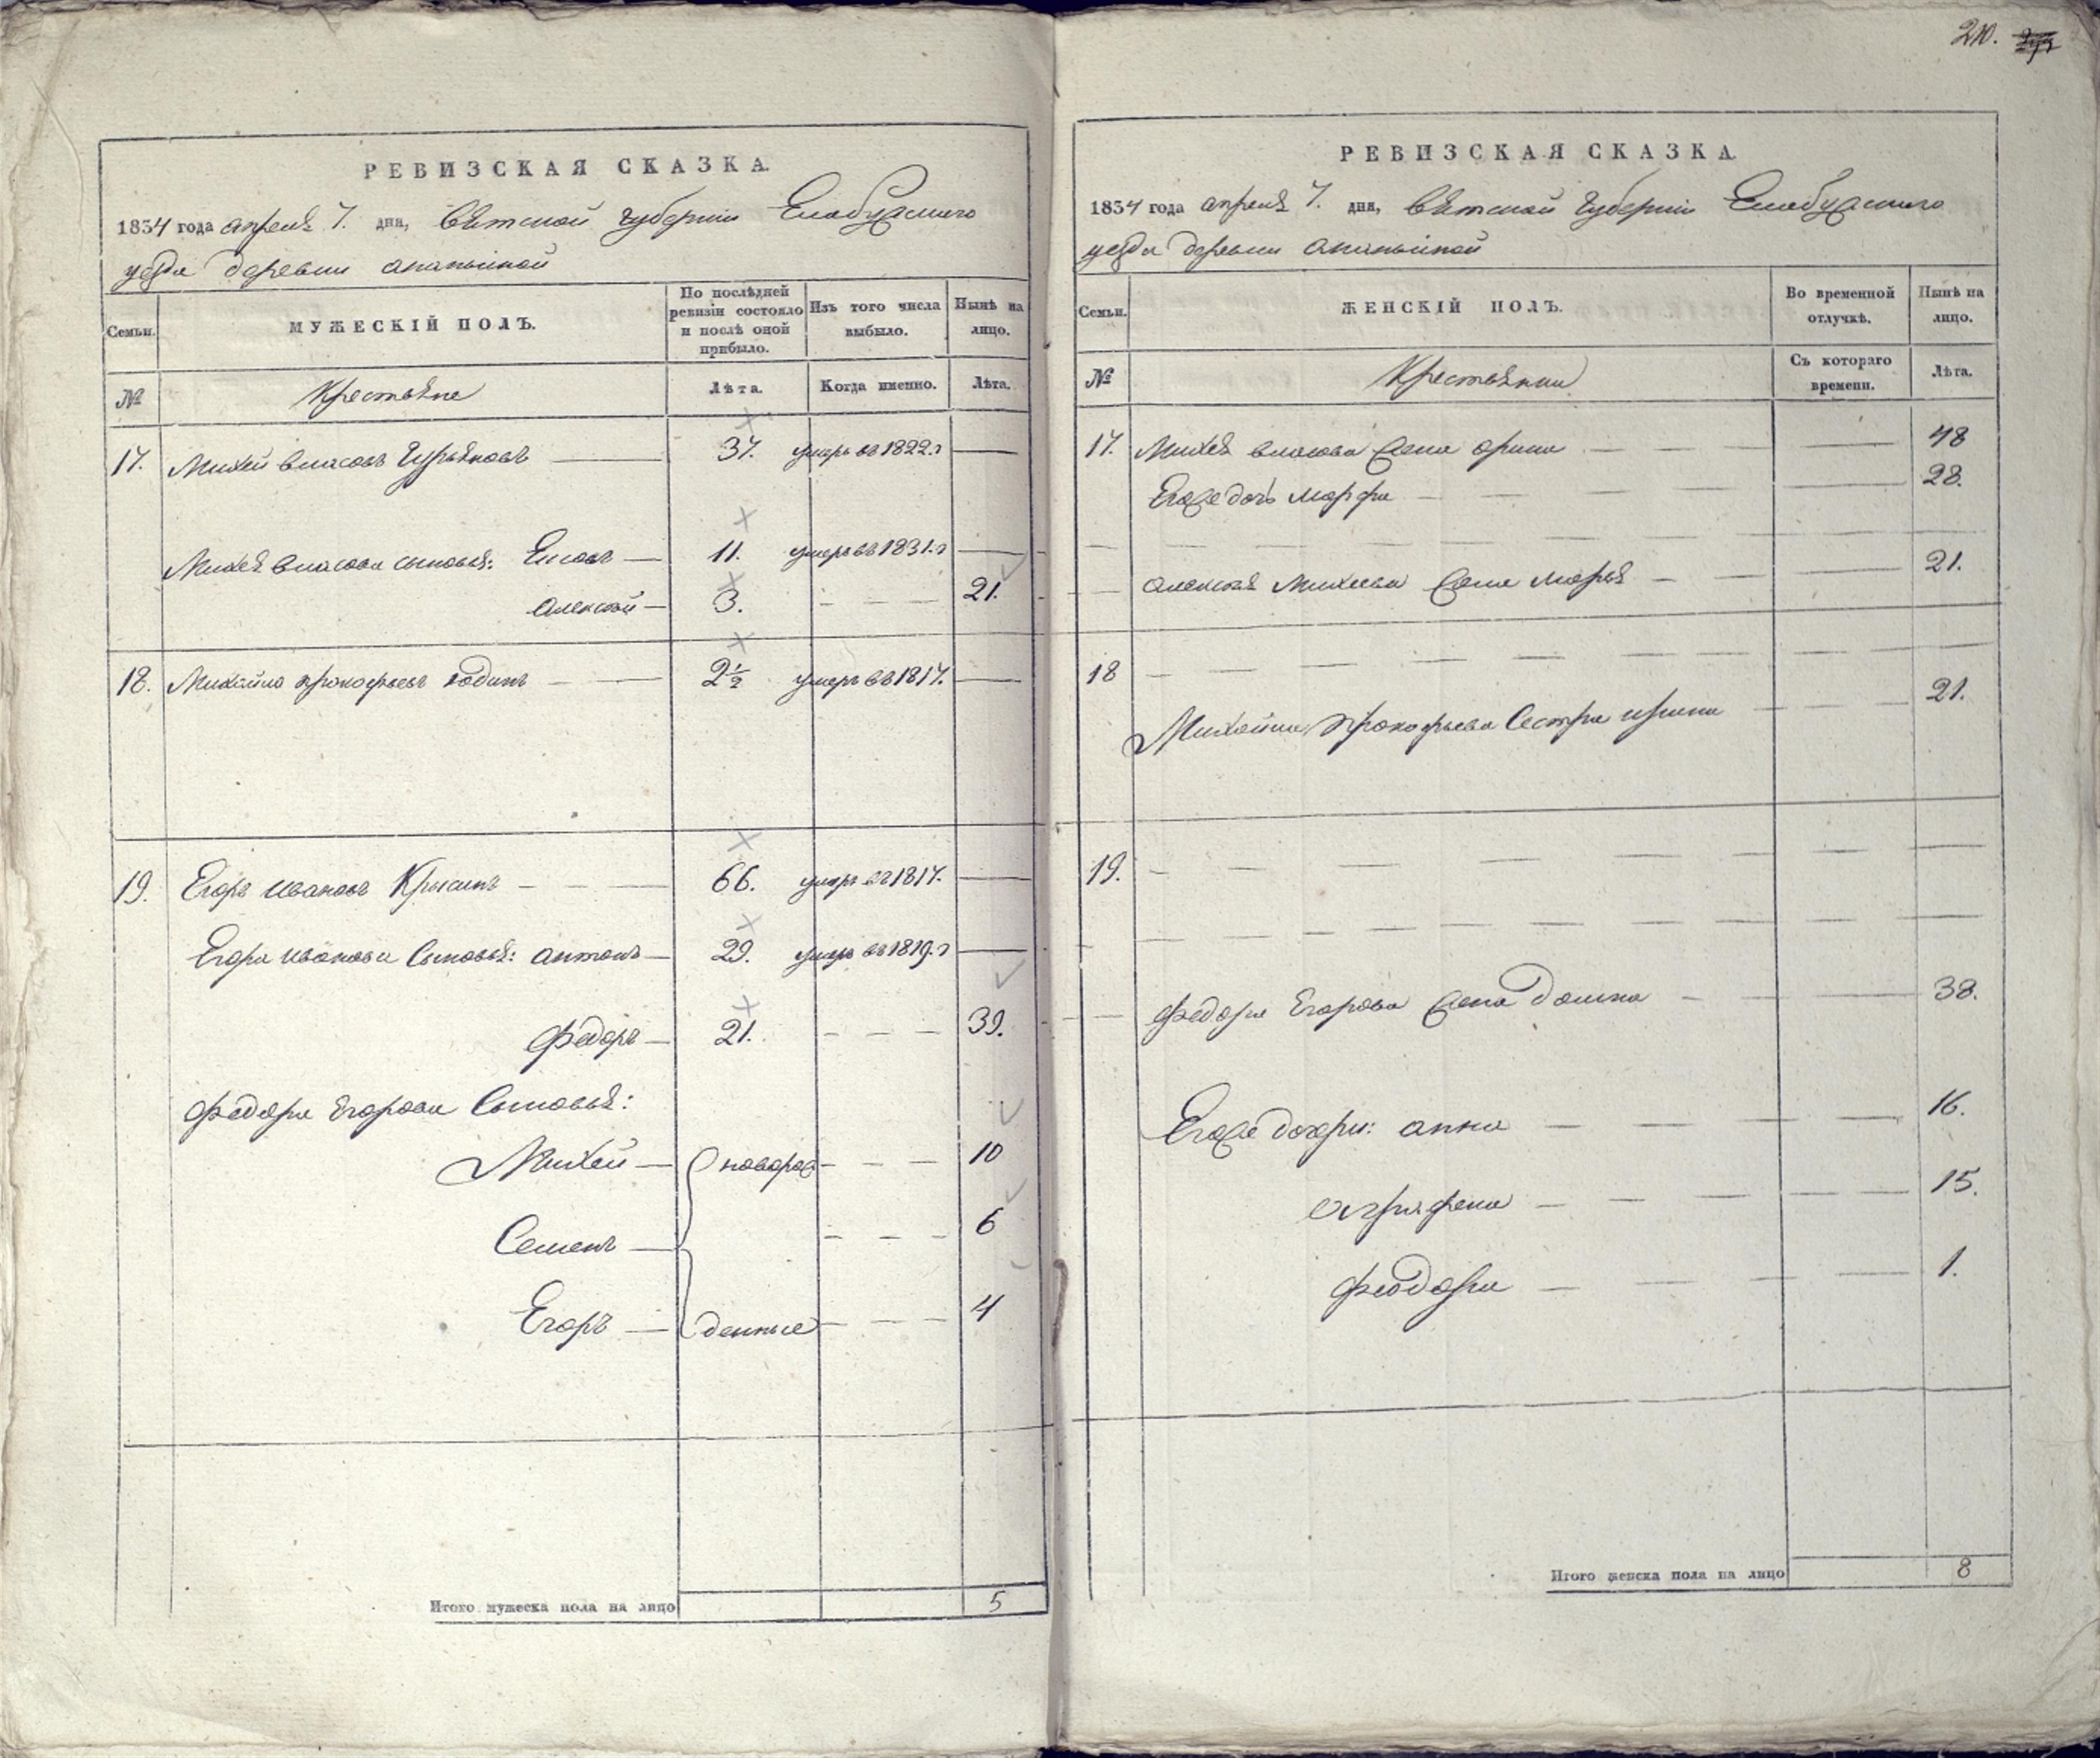 210.
РЕВИЗСКАЯ СКАЗКА.
1834 года апреля 7. дня, Вятской губернии Елабужского
уезда деревни ананьиной
Семьи.
МУЖЕСКІЙ ПОЛЪ.
По послѣдней ревизіи состояло и послѣ оной прибыло.
Изъ того числа выбыло.
Нынѣ на лицо.
№ Крестьяне Лѣта. Когда именно. Лѣта.
17. Михей Власовъ Гурьяновъ — 37. умеръ въ 1822.г —
Михея Власова сыновья: — 11. умеръ въ 1831.г —
Алексей — 3. — — — 21.
18. Михайло прокофьевъ — 2½ умеръ въ 1817. —
19. Егоръ Ивановъ Крысинъ — — — 66. умеръ въ 1817. —
Егора Иванова Сыновья: антонъ — 29. умеръ въ 1819.г —
Федоръ — 21. — — — 39.
Федора Егорова Сыновья:
Михей — новорож — — — 10
Семенъ — — — — 6
Егоръ — денные — — — 4
Итого мужеска пола на лицо 5
РЕВИЗСКАЯ СКАЗКА
1834 года апреля 7. дня, Вятской губернии Елабужского
уезда деревни ананьиной
Семьи.
ЖЕНСКІЙ ПОЛЪ.
Во временной отлучкѣ.
Нынѣ на лицо.
№ Крестьянки Съ котораго времени. Лѣта.
17. Михея Власова жена орина — — — 48
Егоже дочь марфа — — — 28.
алексея Михеева жена марья — — 21.
18 —
Михайла прокофьева Сестра ирина — — — 21.
19. —
Федора Егорова жена домна — — — 38.
Егоже дочери: анна — — — 16.
аграфена — — — 15.
феодора — — — 1.
Итого женска пола на лицо 8